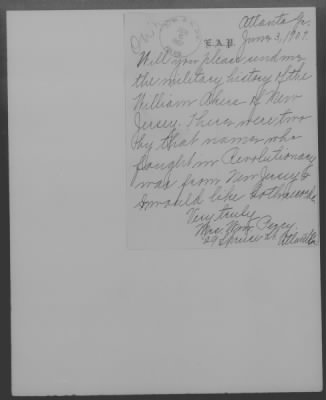 Atlanta Ga.
June 3, 1909.
E.A.P.
Will you please send me
the military history of the
William Akers of New
Jersey. There were two
by that name who
fought in Revolutionary
war from New Jersey &
I would like both records.
Very truly
Mrs. Wm. Percy
29 Spruce St Atlanta Ga.